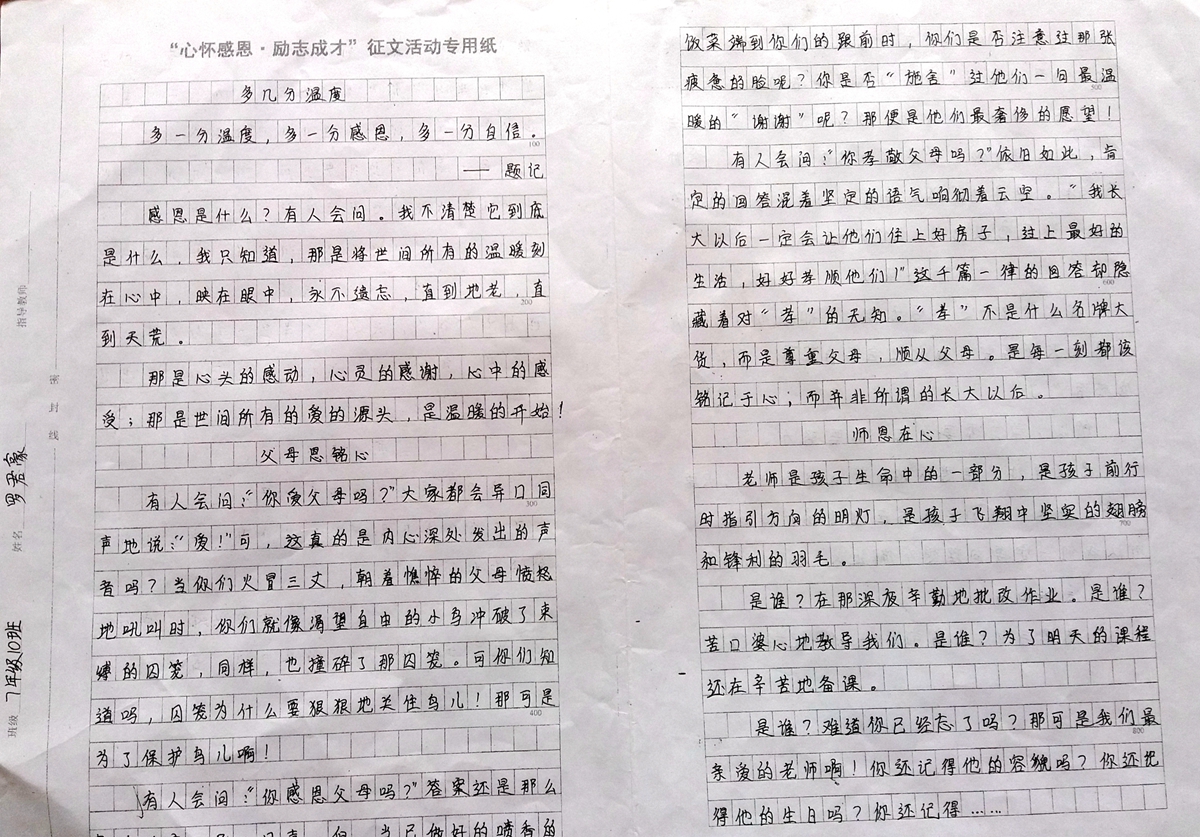 “心怀感恩·励志成才”征文活动专用纸
多几分温度
多一分温度，多一分感恩，多一分自信。
100
—— 题记
感恩是什么？有人会问。我不清楚它到底
是什么，我只知道，那是将世间所有的温暖刻
在心中，映在眼中，永不遗忘，直到地老，直
200
到天荒。
那是心头的感动，心灵的感谢，心中的感
受；那是世间所有的爱的源头，是温暖的开始！
父母恩铭心
有人会问：“你爱父母吗？”大家都会异口同
300
声地说：“爱！”可，这真的是内心深处发出的声
音吗？当你们火冒三丈，朝着憔悴的父母愤怒
地吼叫时，你们就像渴望自由的小鸟冲破了束
缚的囚笼，同样，也撞碎了那囚笼。可你们知
道吗，囚笼为什么要狠狠地关住鸟儿！那可是
400
为了保护鸟儿啊！
有人会问：“你感恩父母吗？”答案还是那么
饭菜端到你们的跟前时，你们是否注意过那张
疲惫的脸呢？你是否“施舍”过他们一句最温
500
暖的“谢谢”呢？那便是他们最奢侈的愿望！
有人会问：“你孝敬父母吗？”依旧如此，肯
定的回答混着坚定的语气响彻着云空。“我长
大以后一定会让他们住上好房子，过上最好的
生活，好好孝顺他们！”这千篇一律的回答却隐
600
藏着对“孝”的无知。“孝”不是什么名牌大
货，而是尊重父母，顺从父母。是每一刻都该
铭记于心；而并非所谓的长大以后。
师恩在心
老师是孩子生命中的一部分，是孩子前行
时指引方向的明灯，是孩子飞翔中坚实的翅膀
700
和锋利的羽毛。
是谁？在那深夜辛勤地批改作业。是谁？
苦口婆心地教导我们。是谁？为了明天的课程
还在辛苦地备课。
是谁？难道你已经忘了吗？那可是我们最
800
亲爱的老师啊！你还记得他的容貌吗？你还记
得他的生日吗？你还记得……
指导教师
密封线
姓名 罗君豪
班级 7年级10班